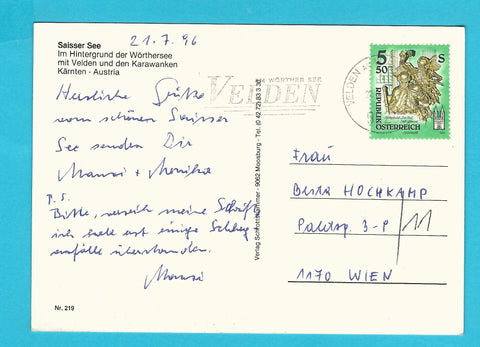 Saisser See
Im Hintergrund der Wörthersee
mit Velden und den Karawanken
Kärnten - Austria
21.7.96
Herzliche Grüße
vom schönen Saisser
See senden Dir
Mausi + Monika
P.S.
Bitte, verzeih meine Schrift
ich habe erst einige Schlag-
anfälle überstanden.
Mausi
Nr. 219
Verlag Schnotthammer - 9062 Moosburg - Tel. (0 42 72) 83 3
AM WÖRTHER SEE
VELDEN
VELDEN
5 50 S
REPUBLIK
ÖSTERREICH
Frau
HOCHKAMP
3-P / 11
1170 WIEN